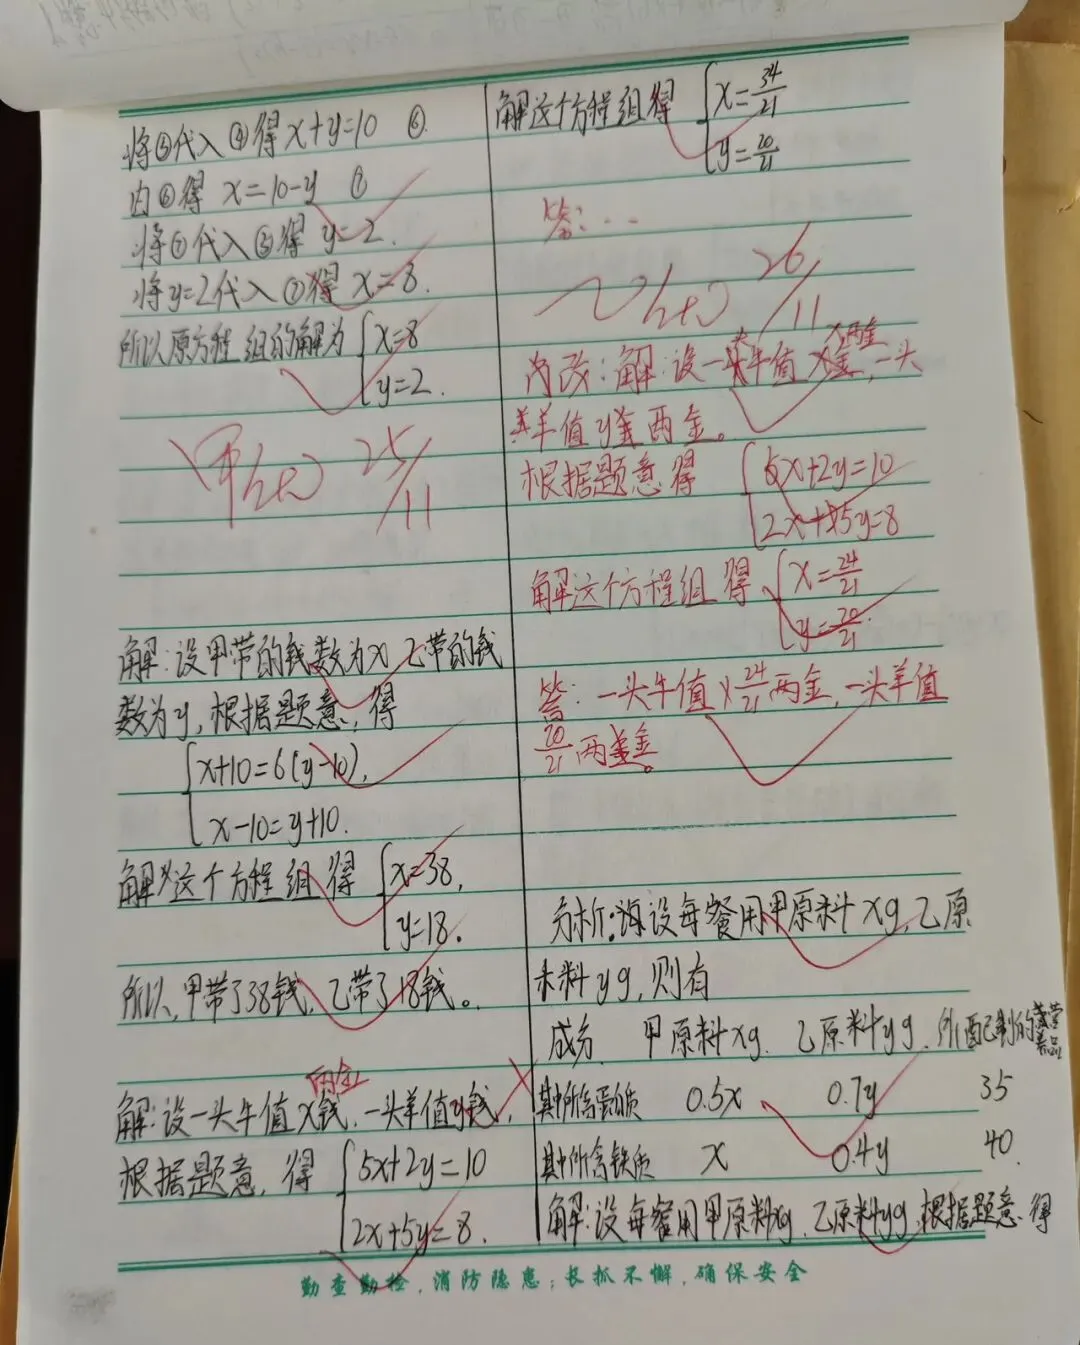 将⑤代入④得x+y=10 ⑥.
由⑥得 x=10-y ⑦
将⑦代入⑤得 y=2.
将y=2代入⑦得 x=8.
所以原方程组的解为 {x=8
y=2.
甲 25/11
解:设甲带的钱数为x 乙带的钱
数为y,根据题意,得
{x+10=6(y-10),
x-10=y+10.
解这个方程组 得 {x=38,
y=18.
所以,甲带了38钱,乙带了18钱。
两金
解:设一头牛值x钱,一头羊值y钱,
根据题意,得 {5x+2y=10
2x+5y=8.
解这个方程组得 {x=34/21
y=20/21
答:...
26/11
改:解:设一头牛值x两金,一头
羊值y两金。
根据题意得 {5x+2y=10
2x+5y=8
解这个方程组 得 {x=24/21
y=20/21.
答:一头牛值24/21两金,一头羊值
20/21两金。
分析:设每餐用甲原料xg,乙原
料yg,则有
成分 甲原料xg. 乙原料yg. 所配制的营养品
其中所含蛋白质 0.5x 0.7y 35
其中所含铁质 x 0.4y 40.
解:设每餐用甲原料xg,乙原料yg,根据题意.得
勤查勤检,消防隐患;长抓不懈,确保安全